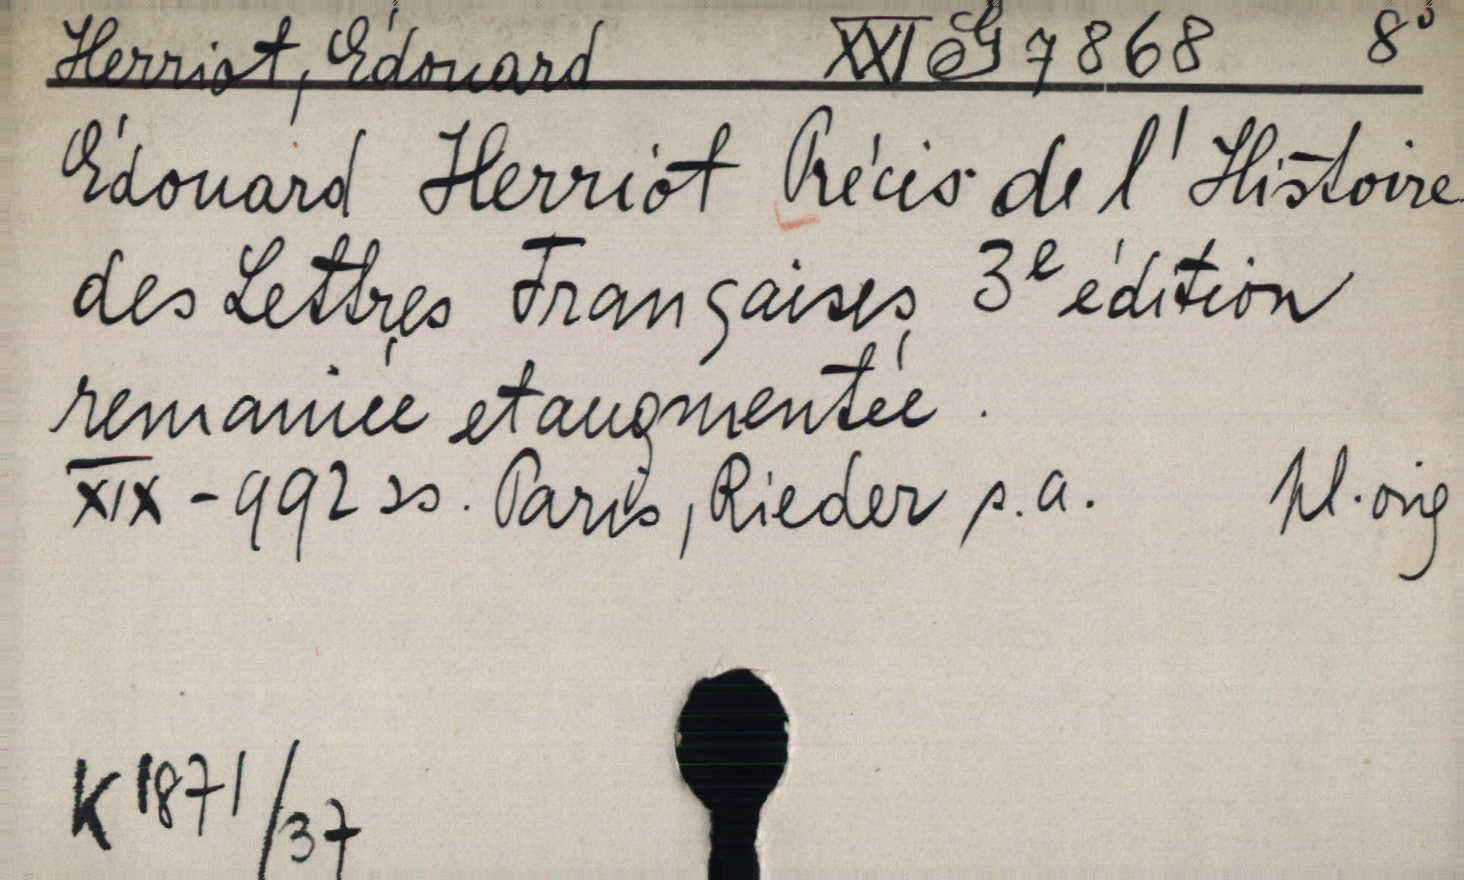 Herriot, Édouard XXI G 7868 8°
Édouard Herriot Précis de l'Histoire
des Lettres Françaises 3e édition
remaniée et augmentée.
XIX-992 ss. Paris, Rieder s.a. pl. orig
K 1871/37